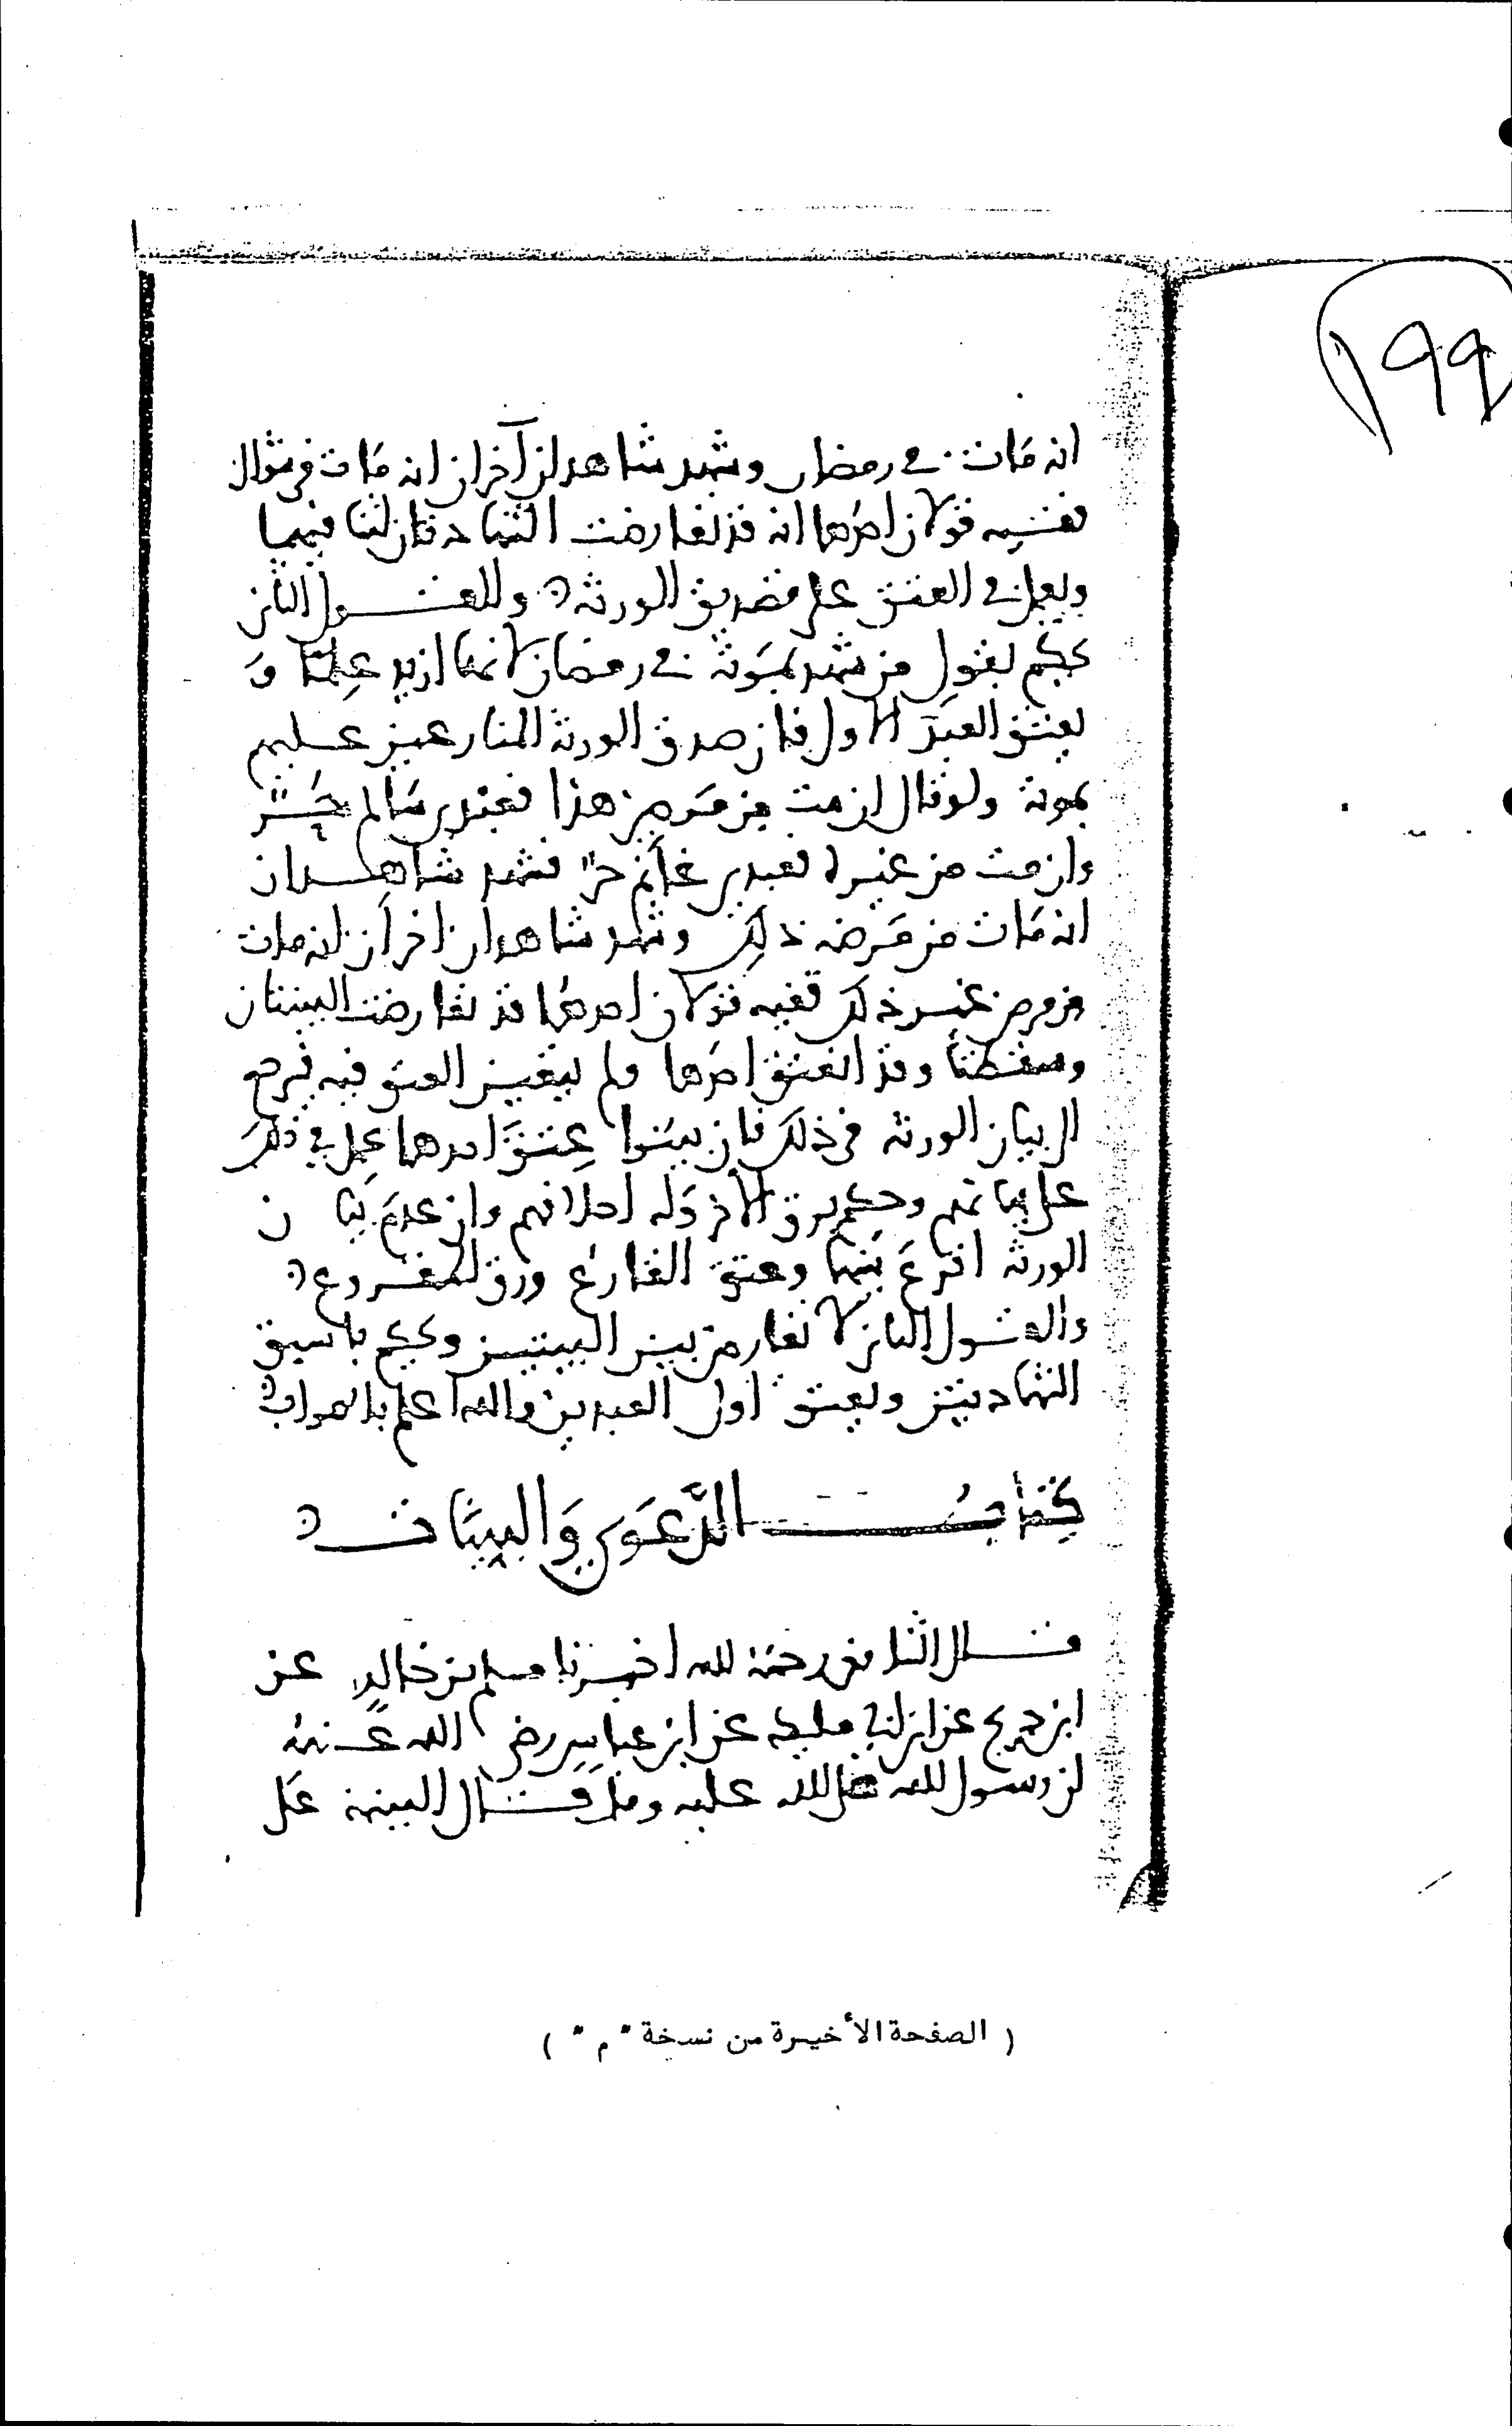 ١٩٩
انه مات في رمضان وشهد شاهدان آخران انه مات في شوال
ففيه قولان احدهما انه قد تعارضت الشهادتان لتنافيهما
ويعمل في العتق على تصديق الورثة والقول الثاني
يحكم بقول من شهد بموته في رمضان لانهما ازيد علما و
يعتق العبد الاول فان صدق الورثة المتنازعين عليهم
بموته ولو قال ان مت من مرضي هذا فعبدي سالم حر
وان مت من غيره فعبدي غانم حر فشهد شاهدان
انه مات من مرضه ذلك وشهد شاهدان اخران انه مات
من مرض غير ذلك ففيه قولان احدهما قد تعارضت البينتان
وسقطتا وقد انعتق احدهما ولم يتعين العتق فيه فيرجع
الى بيان الورثة في ذلك فان بينوا عتق احدهما عمل في ذلك
على بيانهم وحكم برق الآخر وله احلافهم وان عدم بيان
الورثة اقرع بينهما وعتق القارع ورق المقروع
والقول الثاني لا تعارض بين البينتين ويحكم باسبق
الشهادتين ويعتق اول العبدين والله اعلم بالصواب
كتاب الدَّعوى والبينات
قال الشافعي رحمة الله اخبرنا مسلم بن خالد عن
ابن جريج عن ابن ابي مليكه عن ابن عباس رضي الله عنه
ان رسول الله صلى الله عليه وسلم قال البينة على
( الصفحة الأخيرة من نسخة " م " )